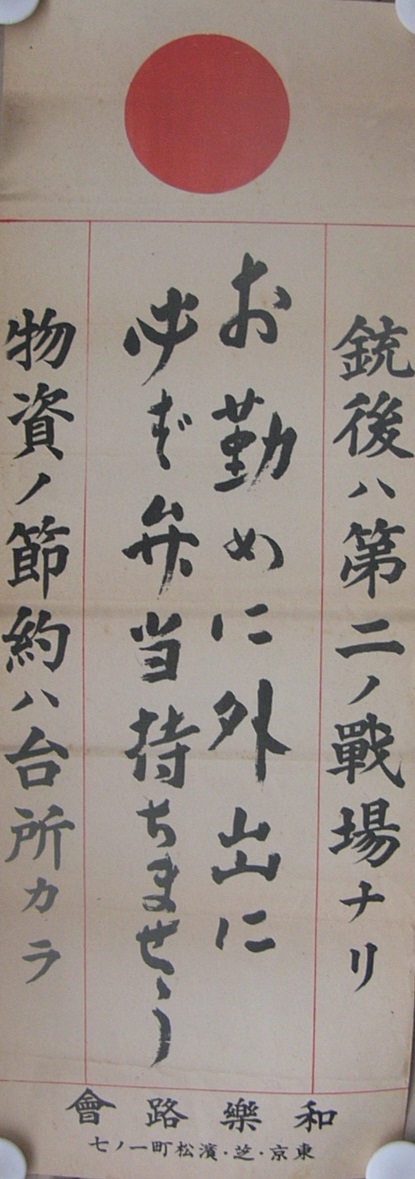 銃後ハ第二ノ戰場ナリ
お勤めに外出に
必ず弁当持ちませう
物資ノ節約ハ台所カラ
和樂路會
東京・芝・濱松町一ノ七